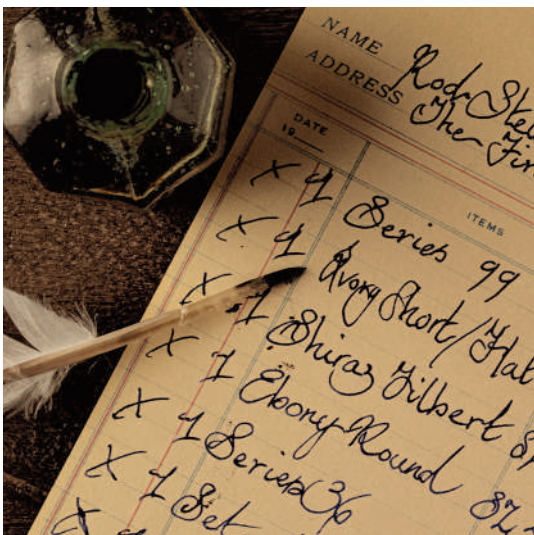 NAME Rod Ste
ADDRESS The Fir
DATE ITEMS
19
x 1 Series 99
x 1 Ivory Short/Hal
x 1 Shiraz Filbert
x 1 Ebony Round SZ
x 1 Series 36
x 1 Set
x 1